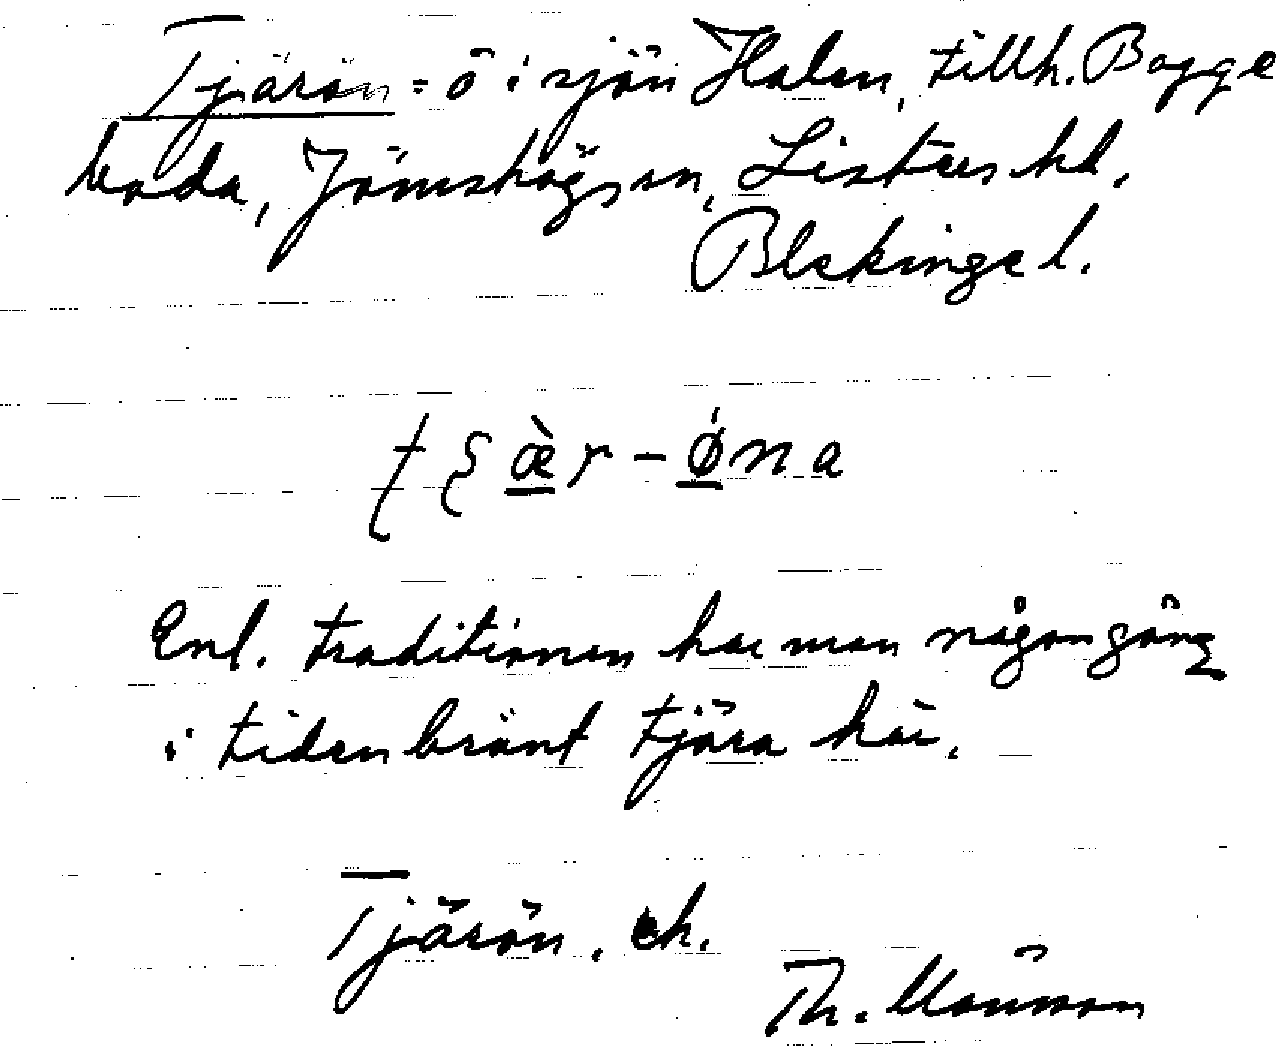 Tjärön = ö i sjön Halen, tillh. Bogge
boda, Jämshögs sn, Listers hd,
Blekinge l.
tʂæ̀r-ǿna
Enl. traditionen har man någon gång
i tiden bränt tjära här.
Tjärön, ek.
Th. Månsson